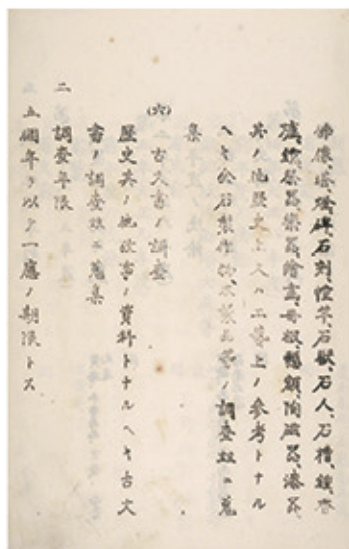 佛像、塔燈、碑、石刻、幢竿、石獸、石人、石槽、鏡、香
爐、鐘、祭器、樂器、繪畫、扁額、陶磁器、漆器
其ノ他歷史上又ハ工藝上ノ參考トナル
ヘキ金石製作物、木製品等ノ調査竝ニ蒐
集
(六) 古文書ノ調査
歷史其ノ他故事ノ資料トナルヘキ古文
書ノ調査竝ニ蒐集
二 調査年限
五個年ヲ以テ一應ノ期限トス